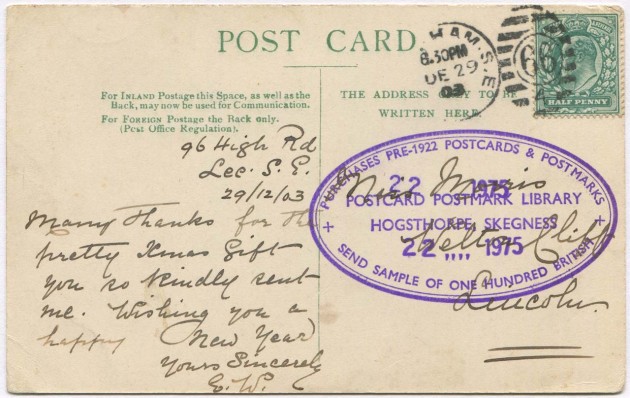 POST CARD.
For INLAND Postage this Space, as well as the
Back, may now be used for Communication.
For FOREIGN Postage the Back only.
(Post Office Regulation).
THE ADDRESS ONLY TO BE
WRITTEN HERE.
HAM.S.E
8.30PM
DE 29
03
HALF PENNY
96 High Rd
Lee. S. E.
29/12/03
Many Thanks for the
pretty Xmas Gift
you so kindly sent
me. Wishing you a
happy New Year
Yours Sincerely
E. W.
Morris
Welton Cliff
Lincoln.
PURCHASES PRE-1922 POSTCARDS & POSTMARKS
22 1975
POSTCARD POSTMARK LIBRARY
HOGSTHORPE, SKEGNESS
22 1975
SEND SAMPLE OF ONE HUNDRED BRITISH